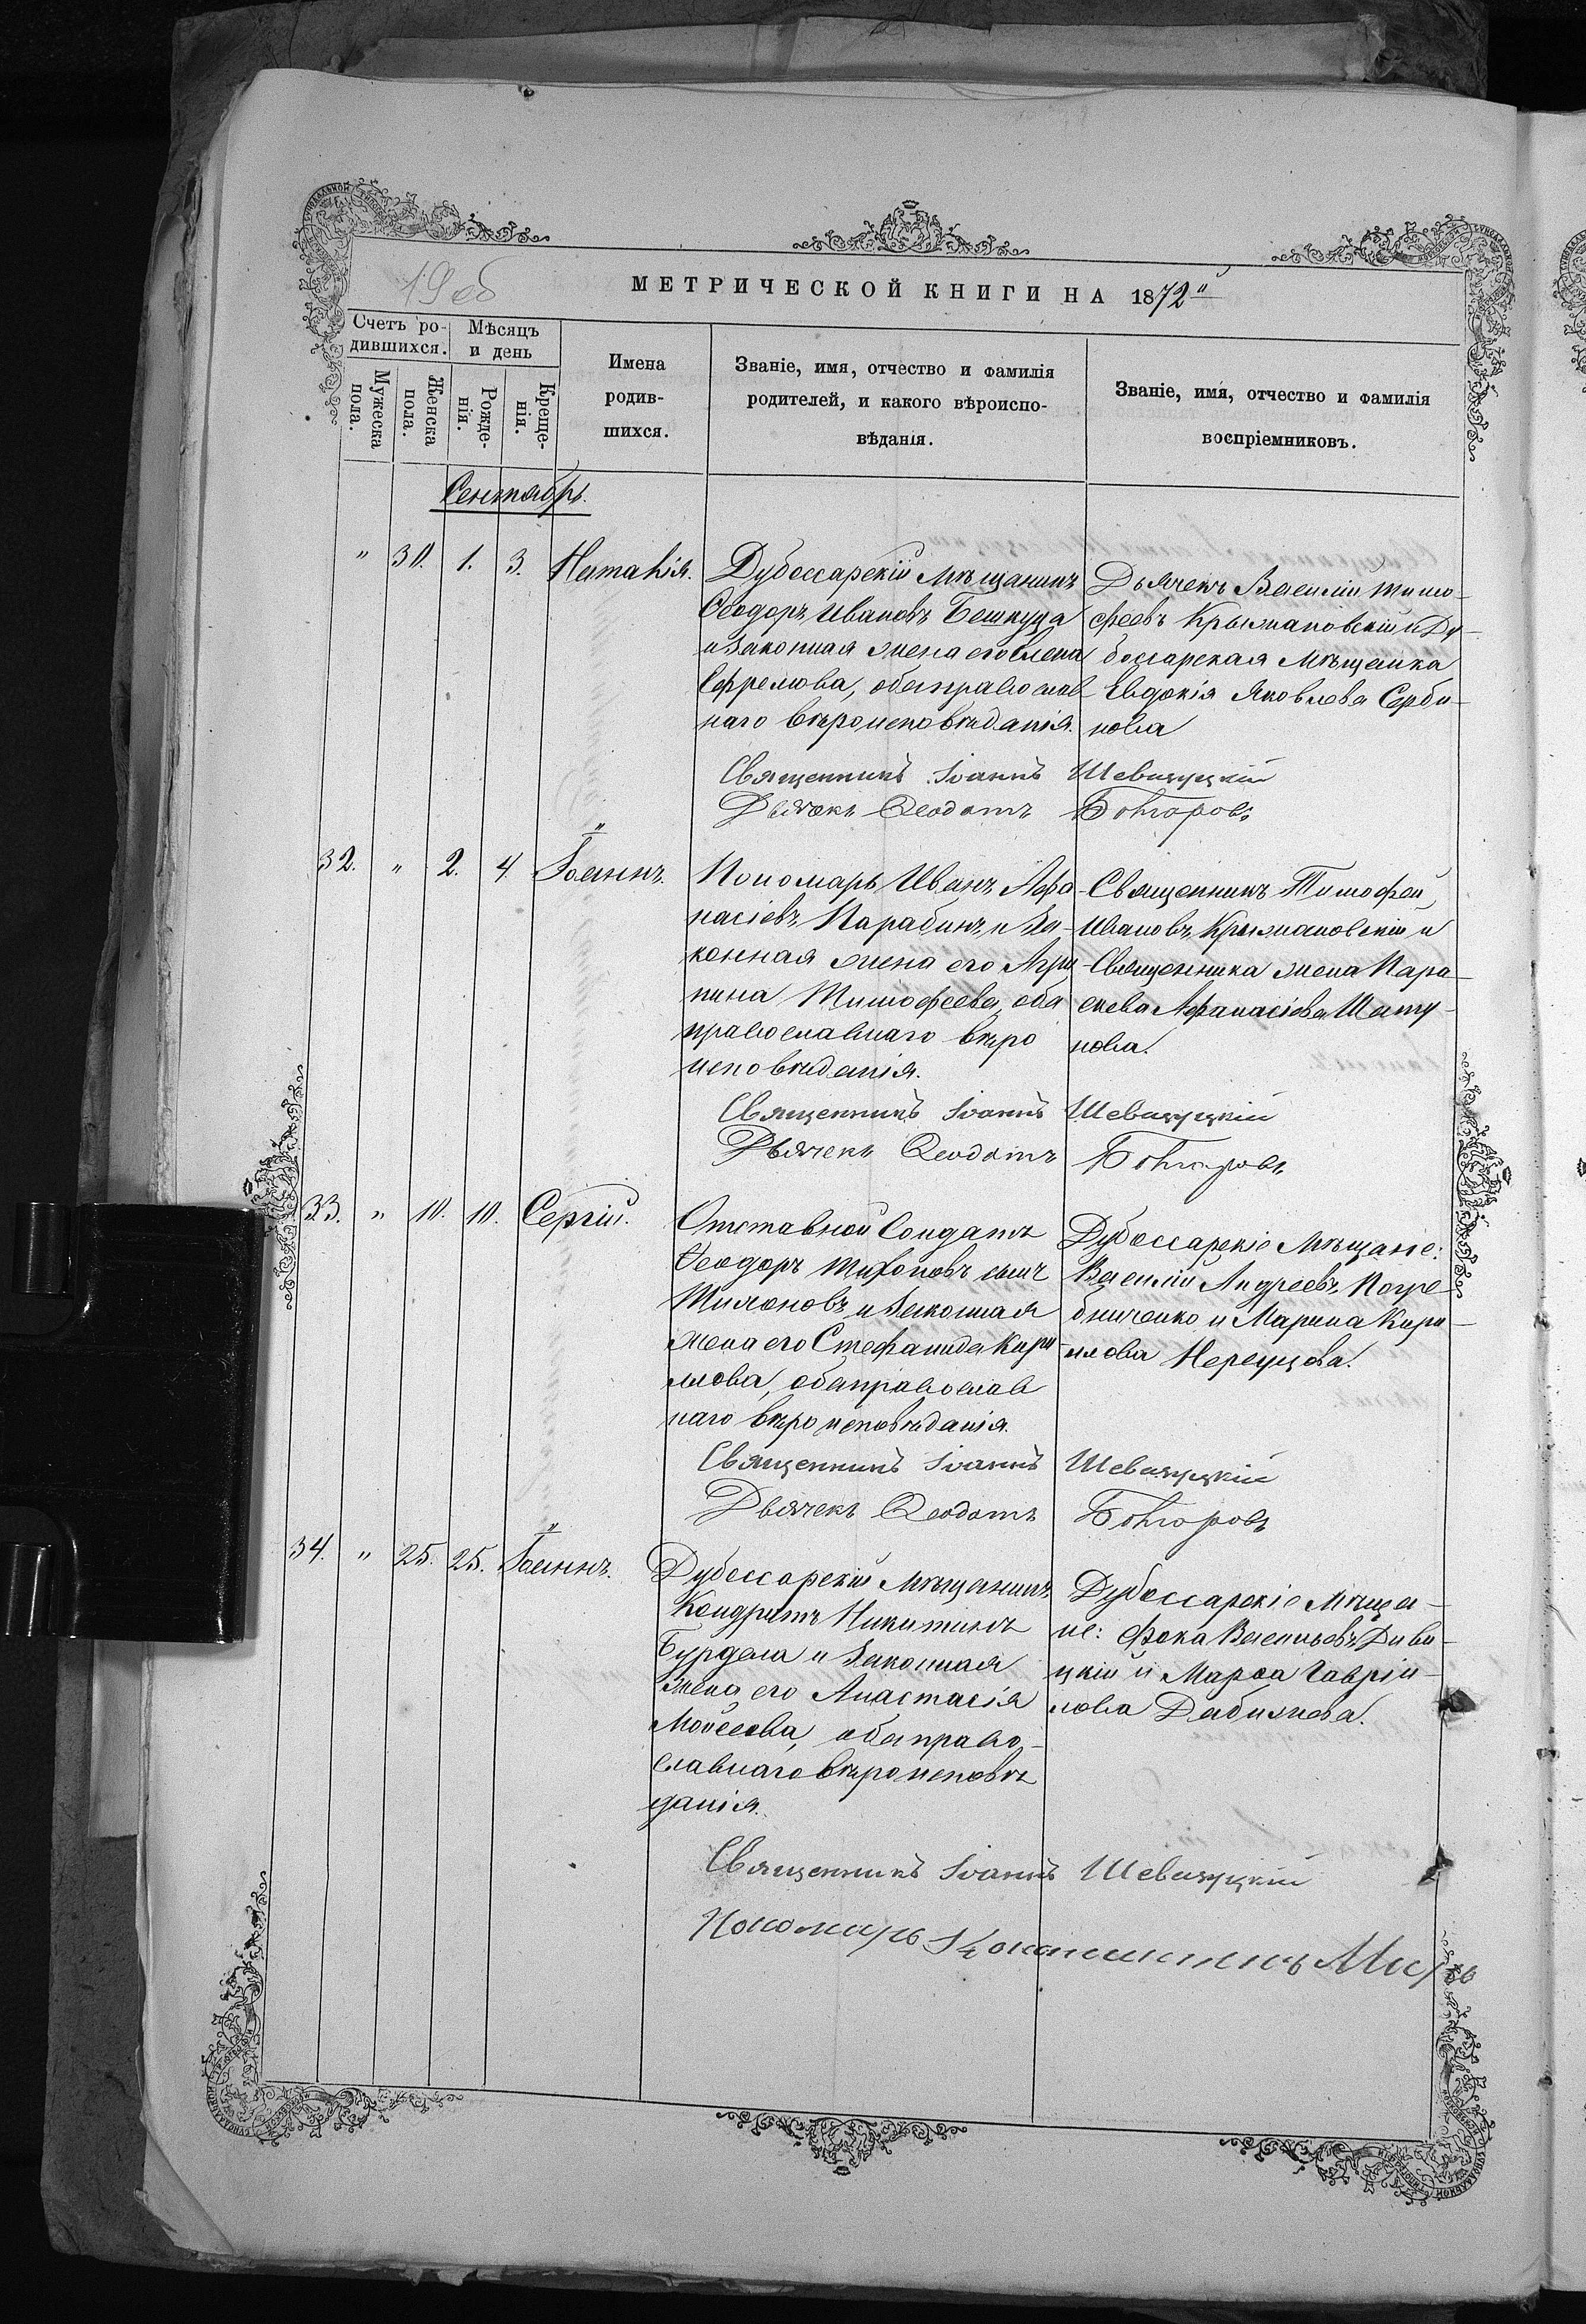 19 об
МЕТРИЧЕСКОЙ КНИГИ НА 1872
Счетъ ро-
дившихся.
Мѣсяцъ
и день
Мужеска
пола.
Женска
пола.
Рожде-
нія.
Креще-
нія.
Имена
родив-
шихся.
Званіе, имя, отчество и фамилія
родителей, и какого вѣроиспо-
вѣданія.
Званіе, имя, отчество и фамилія
воспріемниковъ.
Сентябрь.
" 30. 1. 3. Наталія.
Дубоссарскій Мѣщанинъ
Ѳеодоръ Ивановъ Бешкуца
и законная жена его Елена
Ефремова, оба православ
наго вѣроисповѣданія.
Дьячекъ Василій Тимо-
феевъ Крыжановскій и Ду-
боссарская Мѣщанка
Евдокія Яковлева Серби-
нова
Священникъ Іоаннъ Шевицкій
Дьячекъ Ѳеодотъ
32. " 2. 4. Іоаннъ.
Пономарь Иванъ Афа-
насіевъ Парабинъ и за-
конная жена его Агри-
пина Тимофеева, оба
православнаго вѣро
исповѣданія.
Священникъ Тимофей
Ивановъ Крыжановскій и
Священника жена Пара-
скева Афанасіева Шату-
нова.
Священникъ Іоаннъ Шевицкій
Дьячекъ Ѳеодотъ
33. " 10. 10. Сергій.
Отставной Солдатъ
Ѳеодоръ Тихоновъ сынъ
Тихоновъ и законная
жена его Стефанида Кири-
лова, оба православ
наго вѣроисповѣданія.
Дубоссарскіе Мѣщане:
Василій Андреевъ Погре
бниченко и Марина Кири-
лова Нереуцова.
Священникъ Іоаннъ Шевицкій
Дьячекъ Ѳеодотъ
34. " 25. 25. Іоаннъ.
Дубоссарскій Мѣщанинъ
Кондратъ Никитинъ
Бурдела и законная
жена его Анастасія
Мойсеева, оба право-
славнаго вѣроисповѣ
данія.
Дубоссарскіе Мѣща-
не: Фока Васильевъ Диви-
цкій и Марѳа Гаврі-
лова Дабижева.
Священникъ Іоаннъ Шевицкій
Пономарь Константинъ